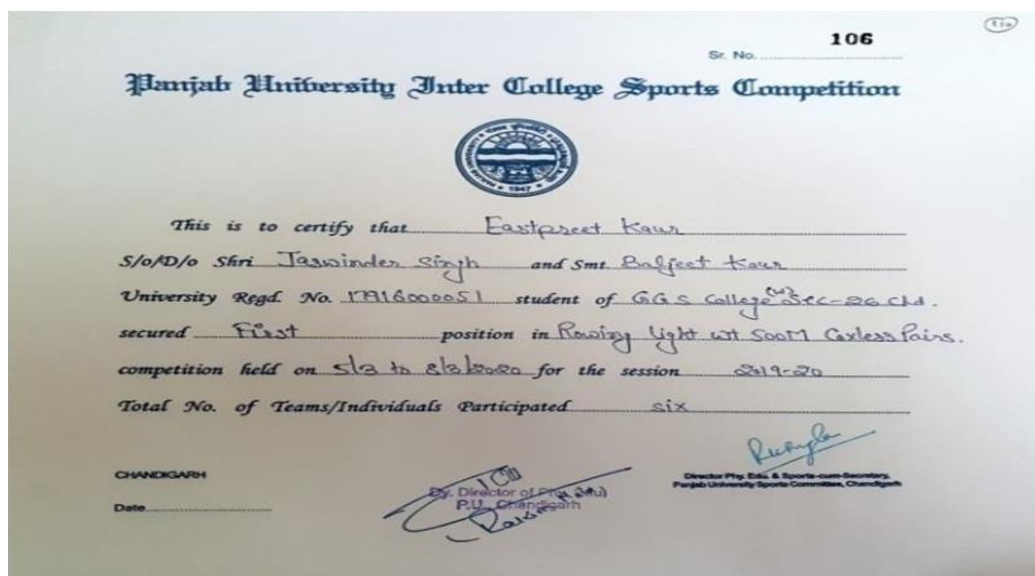 106
Sr. No.
Panjab University Inter College Sports Competition
PANJAB UNIVERSITY
1947
This is to certify that Eastpreet Kaur
S/o/D/o Shri Jaswinder Singh and Smt Baljeet Kaur
University Regd. No. 17916000051 student of GGS College (W) Sec-26 Chd.
secured First position in Rowing light wt 500M Coxless Pairs.
competition held on 5/3 to 8/3/2020 for the session 2019-20
Total No. of Teams/Individuals Participated six
CHANDIGARH
Date
Dy. Director of Phy. Edu)
P.U., Chandigarh
Director Phy. Edu. & Sports-cum-Secretary,
Panjab University Sports Committee, Chandigarh